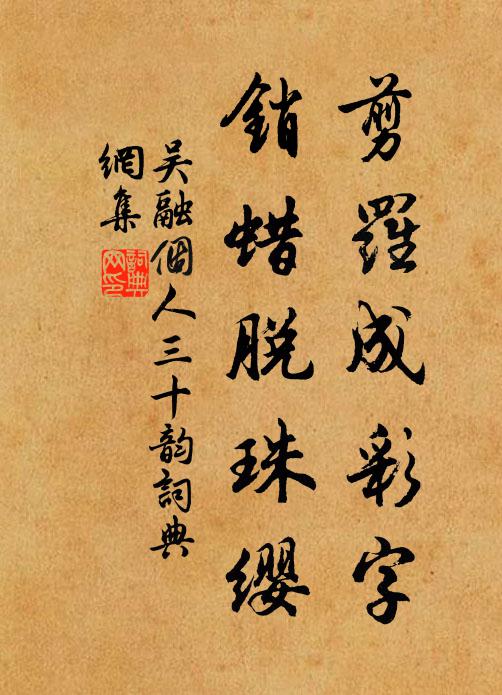 剪羅成彩字
銷蜡脫珠纓
吴融個人三十韵詞典
網集
詞典
网印